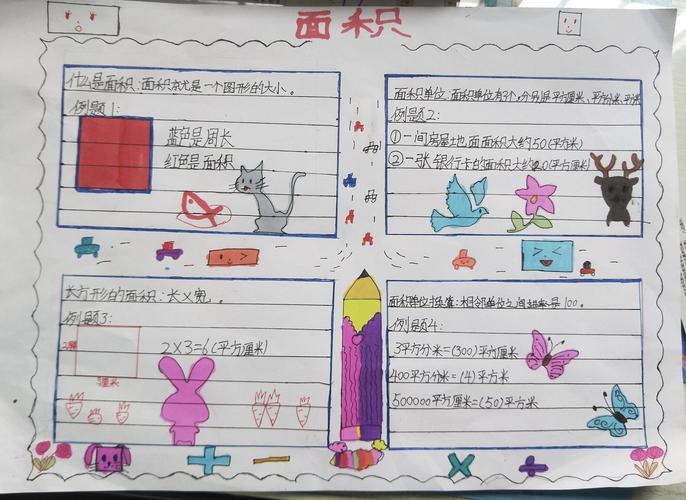 面积
什么是面积:面积就是一个图形的大小。
例题1:
蓝色是周长
红色是面积
面积单位:面积单位有3个,分别是平方厘米、平方分米、平方米
例题2:
①一间房屋地面面积大约50(平方米)
②一张银行卡的面积大约20(平方厘米)
长方形的面积:长×宽。
例题3:
2厘米
3厘米
2×3=6(平方厘米)
面积单位换算:相邻单位之间进率是100。
例题4:
3平方分米=(300)平方厘米
400平方分米=(4)平方米
500000平方厘米=(50)平方米